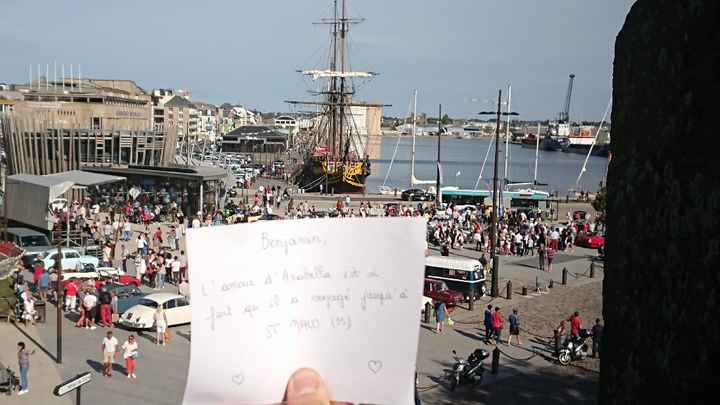 Benjamin,
L'amour d'Arabella est si
fort qu'il a voyagé jusqu'à
ST MALO (M)